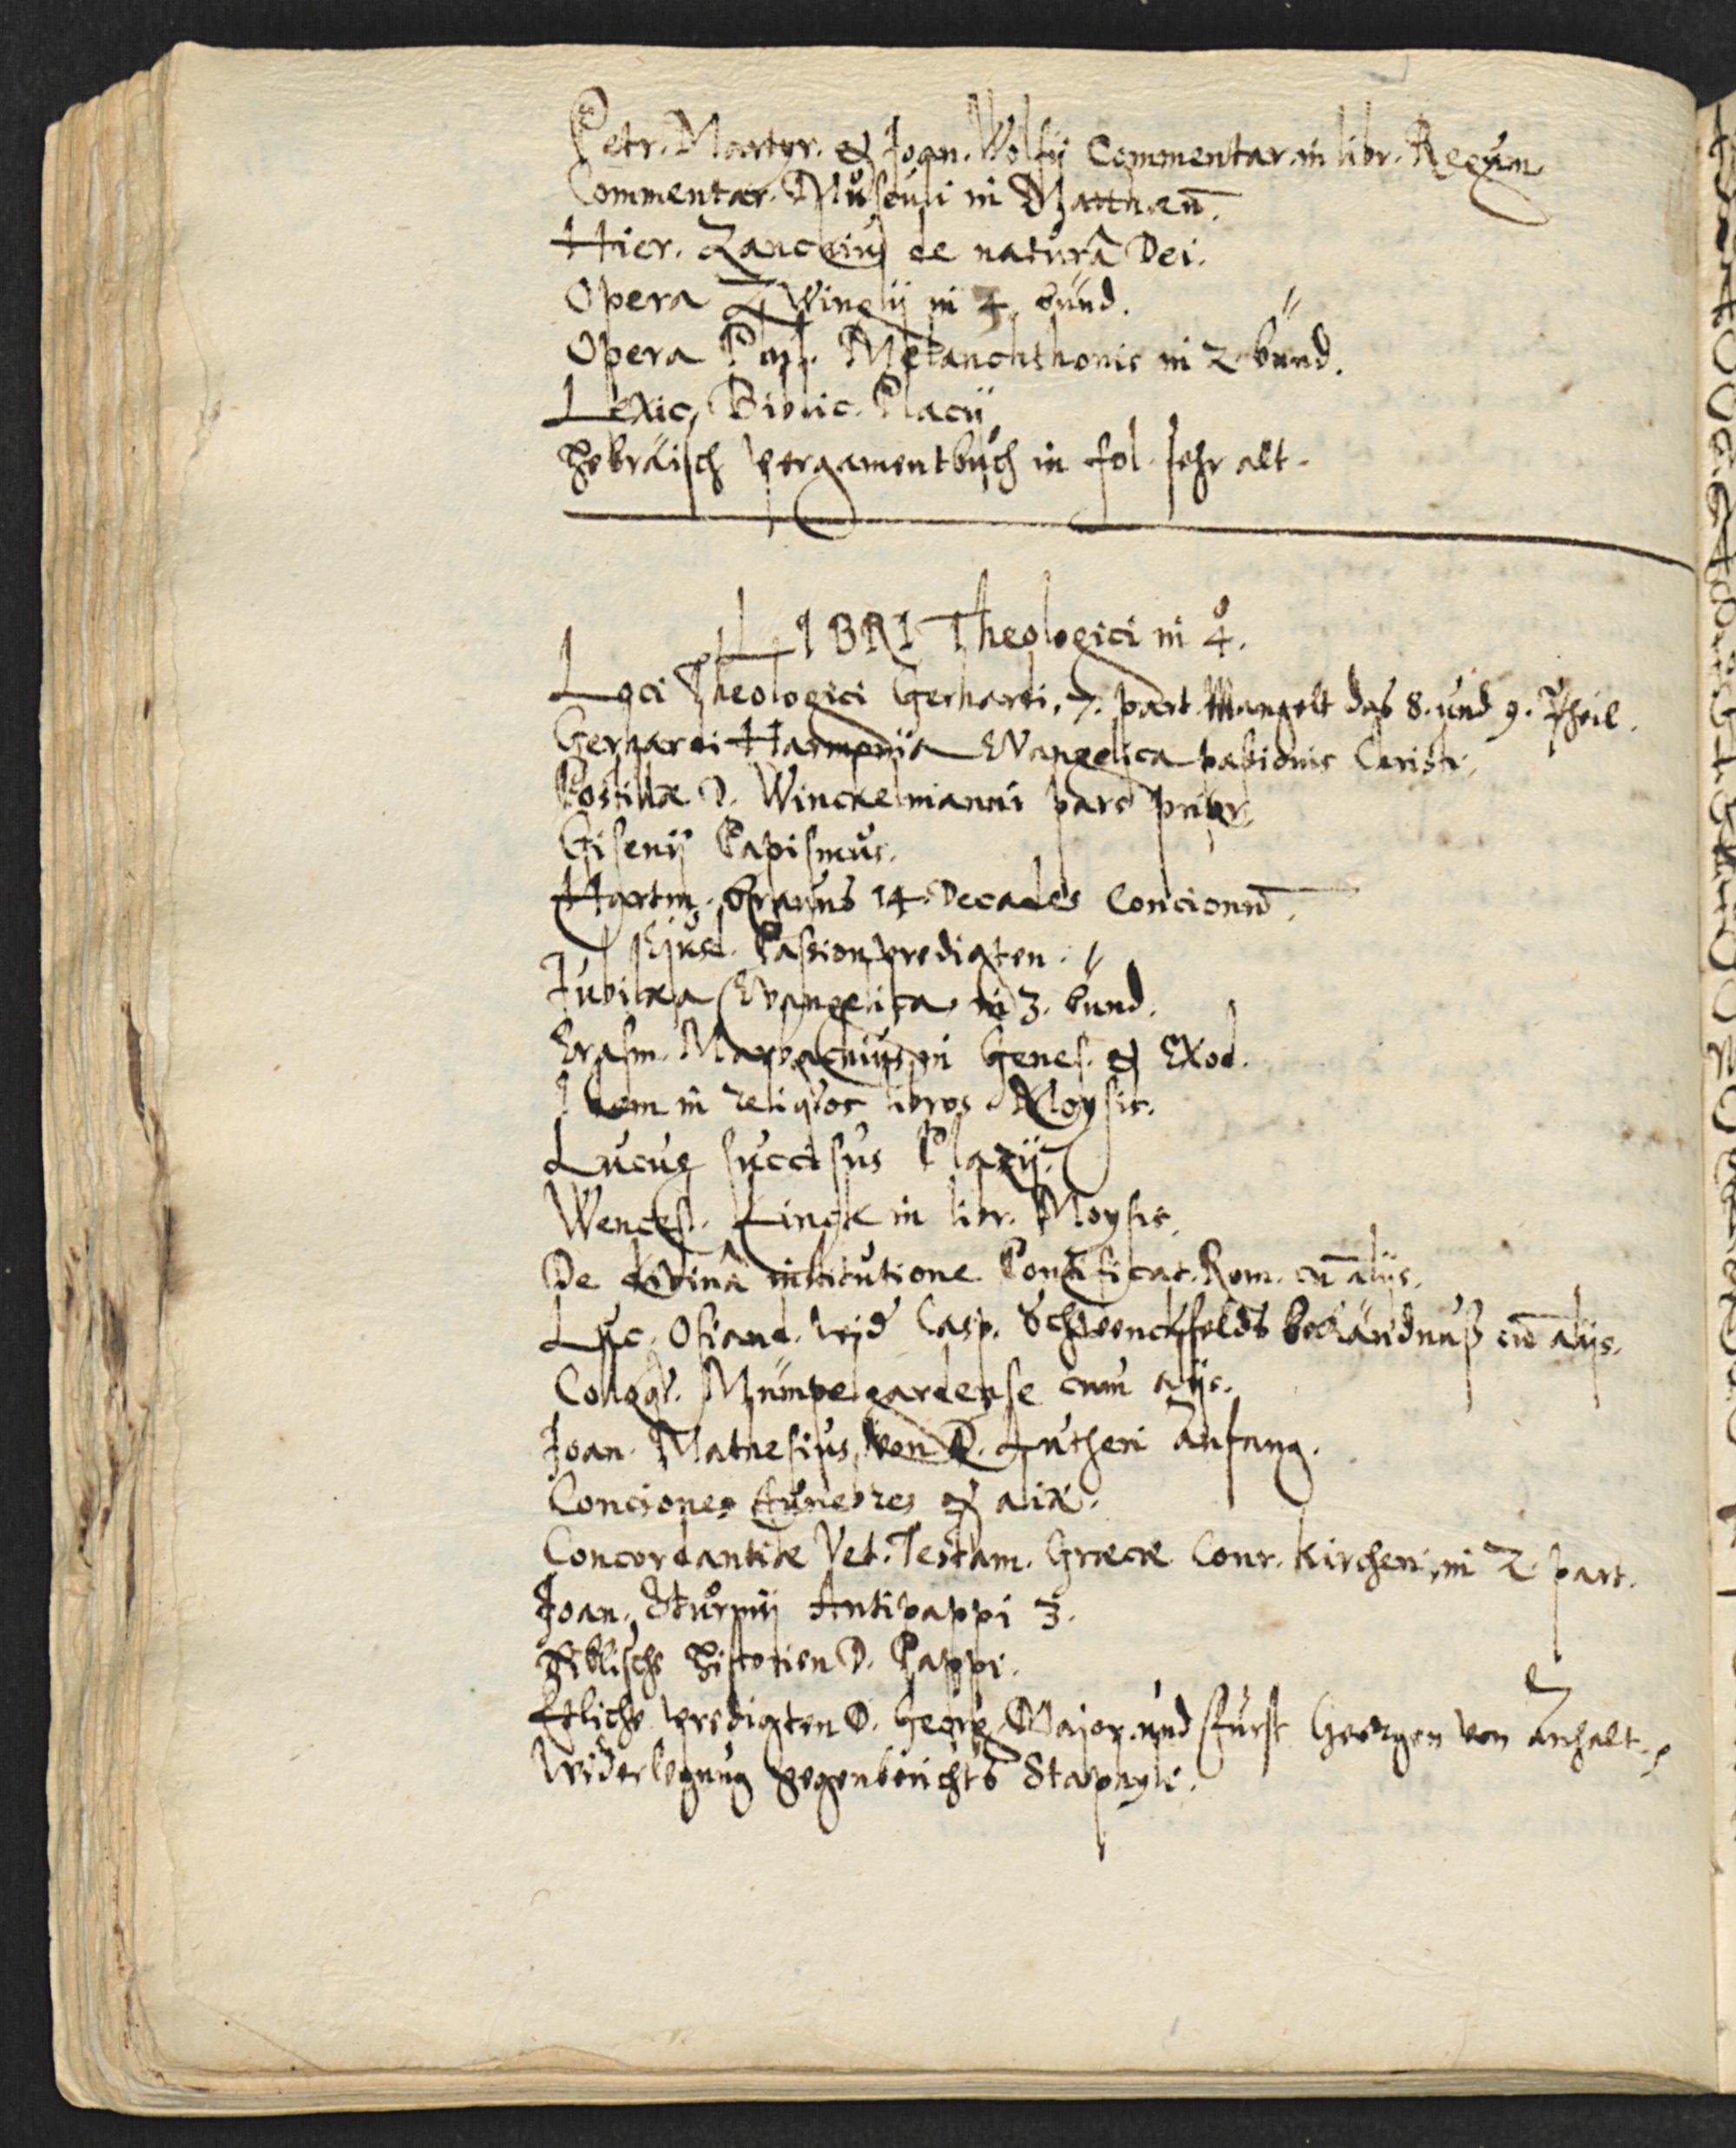 Petr. Martyr. & Joan. Wolfij Commentar. in libr. Regum
Commentar. Musculi in Matthæū.
Hier. Zanchius de naturâ Dei.
Opera Zwinglij in 4. bünd.
Opera Phil. Melanchthonis in 2 bünd.
Lexic. Biblic. Flacij
Hebräisch pergamentbuch in fol. sehr alt.
LIBRI Theologici in 4º.
Loci Theologici Gerhardi, 7. part. Mangelt das 8. und 9. Theil.
Gerhardi Harmonia Evangelica passionis Christi,
Postillæ D. Winckelmanni pars prior,
Gisenij Papismus.
Hartm. Brauns 14 Decades Concionū.
Ejusd. Passionpredigten.
Jubilæa Evangelica in 3. bünd.
Erasm. Marbachius in Genes. & Exod.
Idem in reliquos libros Moysis.
Lucus succisus
Wencesl. Linck in libr. Moysis,
De divinâ institutione Pontificat. Rom. cū alijs.
Luc. Osiand. wid Casp. Schwenckfelds bekändnuß cū alijs.
Colloq. Mümpelgardense cum alijs.
Joan. Mathesius, von D. Lutheri Anfang.
Conciones funebres & aliæ.
Concordantiæ Vet. Testam. Græcæ Conr. Kircheri, in 2. part.
Joan. Sturmij Antipappi 3.
Biblische Historien D. Pappi.
Etliche predigten D. Georg Major. und Fürst Georgen von Anhalt.
Widerlegung gegenberichts Staphyli.